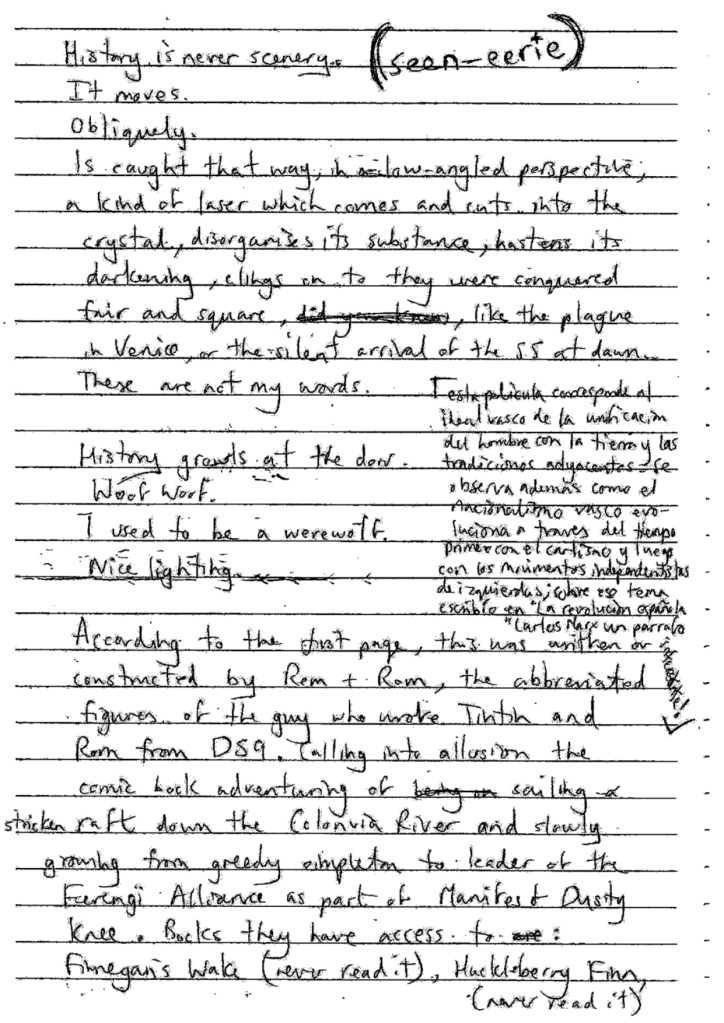 History is never scenery. (seen-eerie)
It moves.
Obliquely.
Is caught that way, in a low-angled perspective,
a kind of laser which comes and cuts into the
crystal, disorganises its substance, hastens its
darkening, clings on to they were conquered
fair and square, did you know, like the plague
in Venice, or the silent arrival of the SS at dawn.
These are not my words.
History growls at the door.
Woof Woof.
I used to be a werewolf.
Nice lighting.
esta pelicula corresponde al
ideal vasco de la unificacion
del hombre con la tierra y las
tradiciones adyacentes - se
observa además como el
nacionalismo vasco evo-
luciona a traves del tiempo
primero con el carlismo y luego
con los movimentos independentistas
de izquierdas; sobre ese tema
escribio en "La revolucion española
"Carlos Marx un parrafo
According to the first page, this was written or
constructed by Rem + Rom, the abbreviated
figures of the guy who wrote Tintin and
Rom from DS9. Calling into allusion the
comic book adventuring of being on sailing a
stricken raft down the Colonvia River and slowly
growing from greedy simpleton to leader of the
Ferengi Alliance as part of Manifest Dusty
Knee. Books they have access to are:
Finnegan's Wake (never read it), Huckleberry Finn,
(never read it)